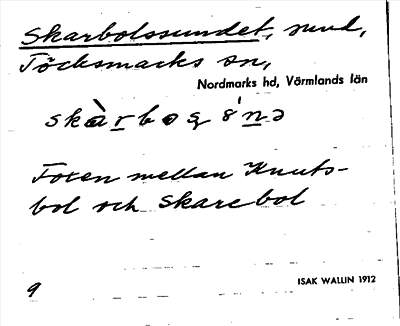 Skarbolssundet, sund,
Töcksmarks sn,
Nordmarks hd, Värmlands län
Foxen mellan Knuts-
bol och Skarebol
9
ISAK WALLIN 1912